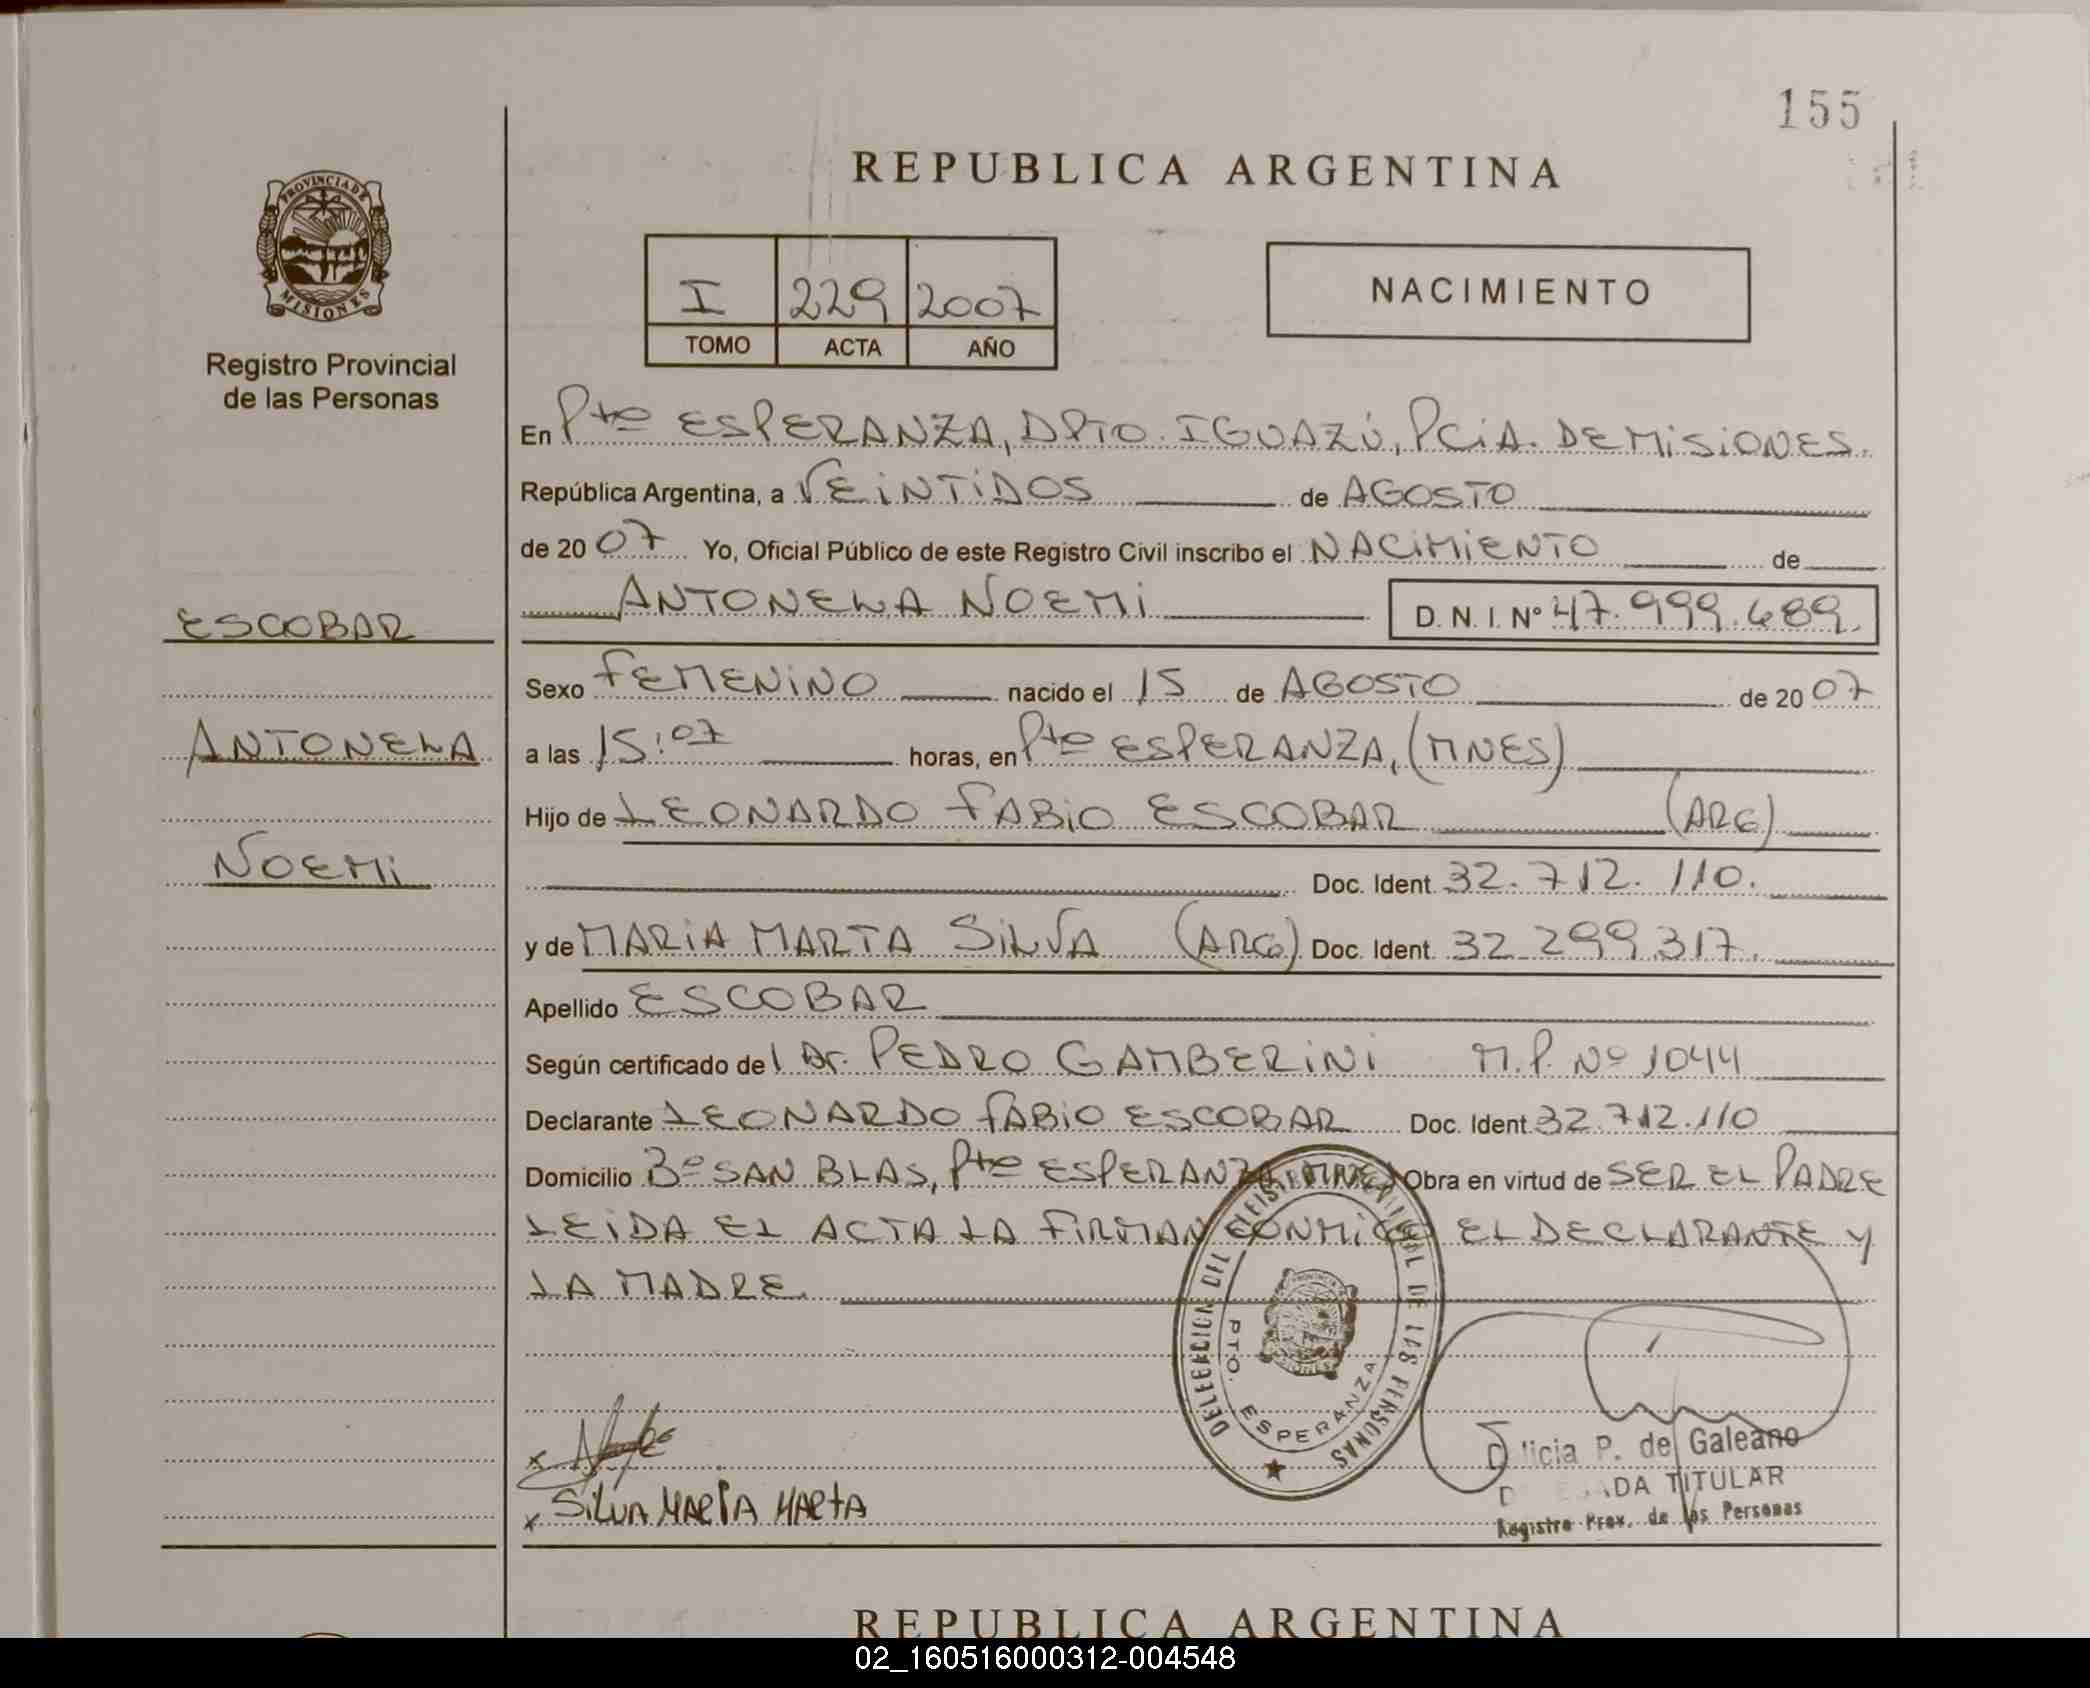 155
REPUBLICA ARGENTINA
PROVINCIA DE
MISIONES
Registro Provincial
de las Personas
I 229 2007
TOMO ACTA AÑO
NACIMIENTO
En Pto ESPERANZA, DPTO. IGUAZÚ, PCIA. DE MISIONES.
República Argentina, a VEINTIDOS de AGOSTO
de 2007 Yo, Oficial Público de este Registro Civil inscribo el NACIMIENTO de
ESCOBAR
ANTONELLA NOEMI D. N. I. Nº 47.999.689.
Sexo FEMENINO nacido el 15 de AGOSTO de 2007
ANTONELLA
a las 15:07 horas, en Pto ESPERANZA, (MNES)
Hijo de LEONARDO FABIO ESCOBAR (ARG)
NOEMI
Doc. Ident. 32.712.110.
y de MARIA MARTA SILVA (ARG) Doc. Ident. 32.299.317.
Apellido ESCOBAR
Según certificado del Dr. PEDRO GAMBERINI M.P. Nº 1044
Declarante LEONARDO FABIO ESCOBAR Doc. Ident. 32.712.110
Domicilio Bº SAN BLAS, Pto ESPERANZA, MNES Obra en virtud de SER EL PADRE
LEIDA EL ACTA LA FIRMAN CONMIGO EL DECLARANTE Y
LA MADRE.
DELEGACION DEL REGISTRO PROVINCIAL DE LAS PERSONAS
PTO. ESPERANZA
x
x SILVA MARIA MARTA
licia P. de Galeano
TITULAR
Registro Prov. de las Personas
REPUBLICA ARGENTINA
02_160516000312-004548